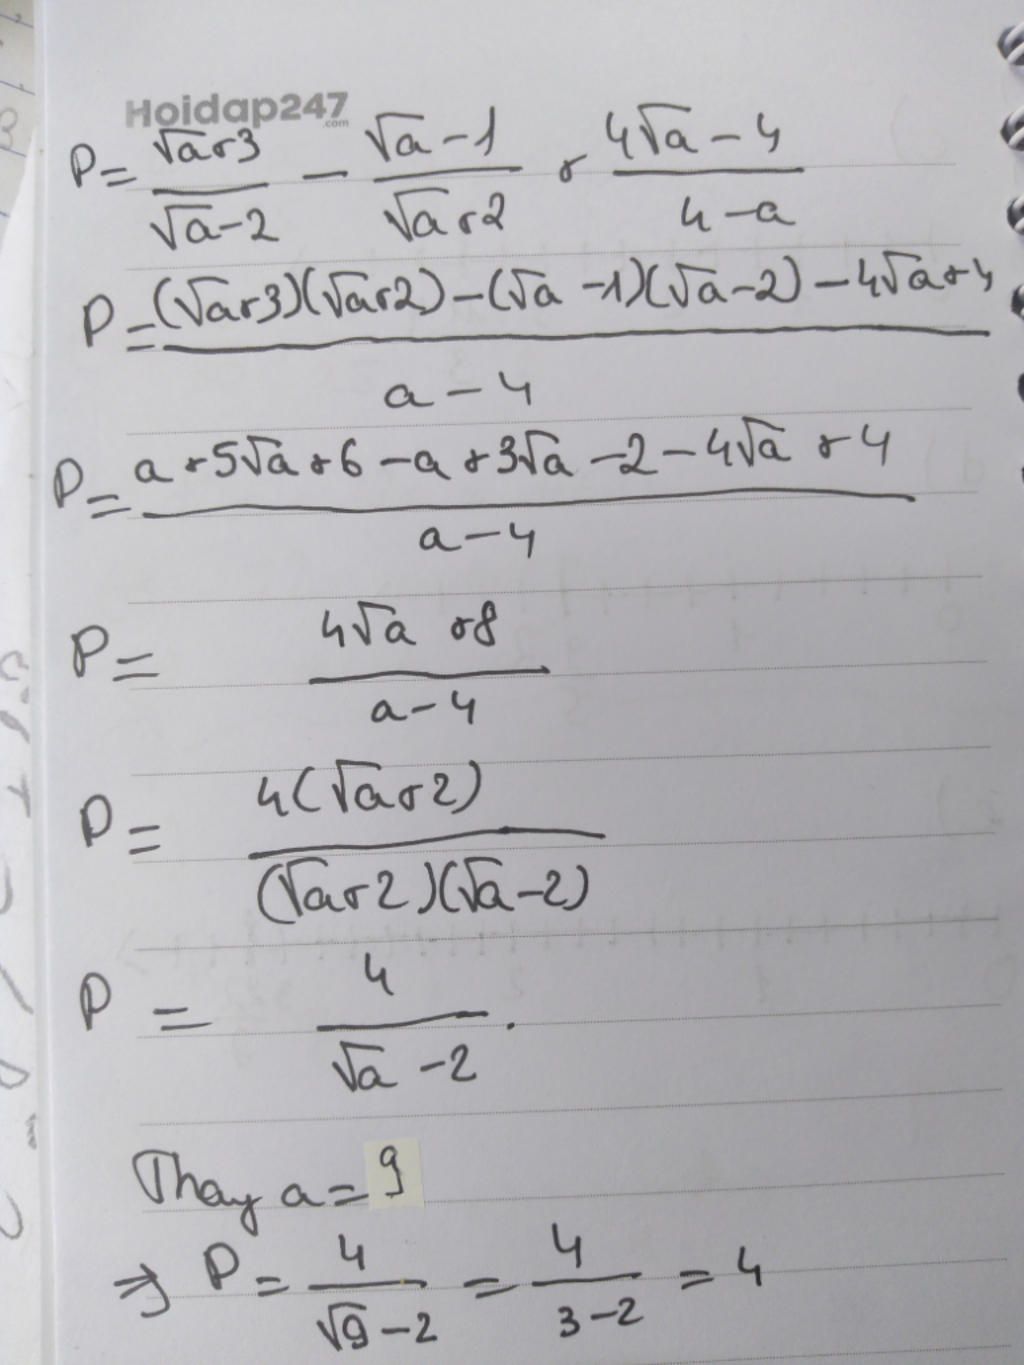 Hoidap247
.com
P = (√a+3)/(√a-2) - (√a-1)/(√a+2) + (4√a-4)/(4-a)
P = ((√a+3)(√a+2)-(√a-1)(√a-2)-4√a+4)/(a-4)
P = (a+5√a+6-a+3√a-2-4√a+4)/(a-4)
P = (4√a+8)/(a-4)
P = (4(√a+2))/((√a+2)(√a-2))
P = 4/(√a-2).
Thay a = 9
⇒ P = 4/(√9-2) = 4/(3-2) = 4